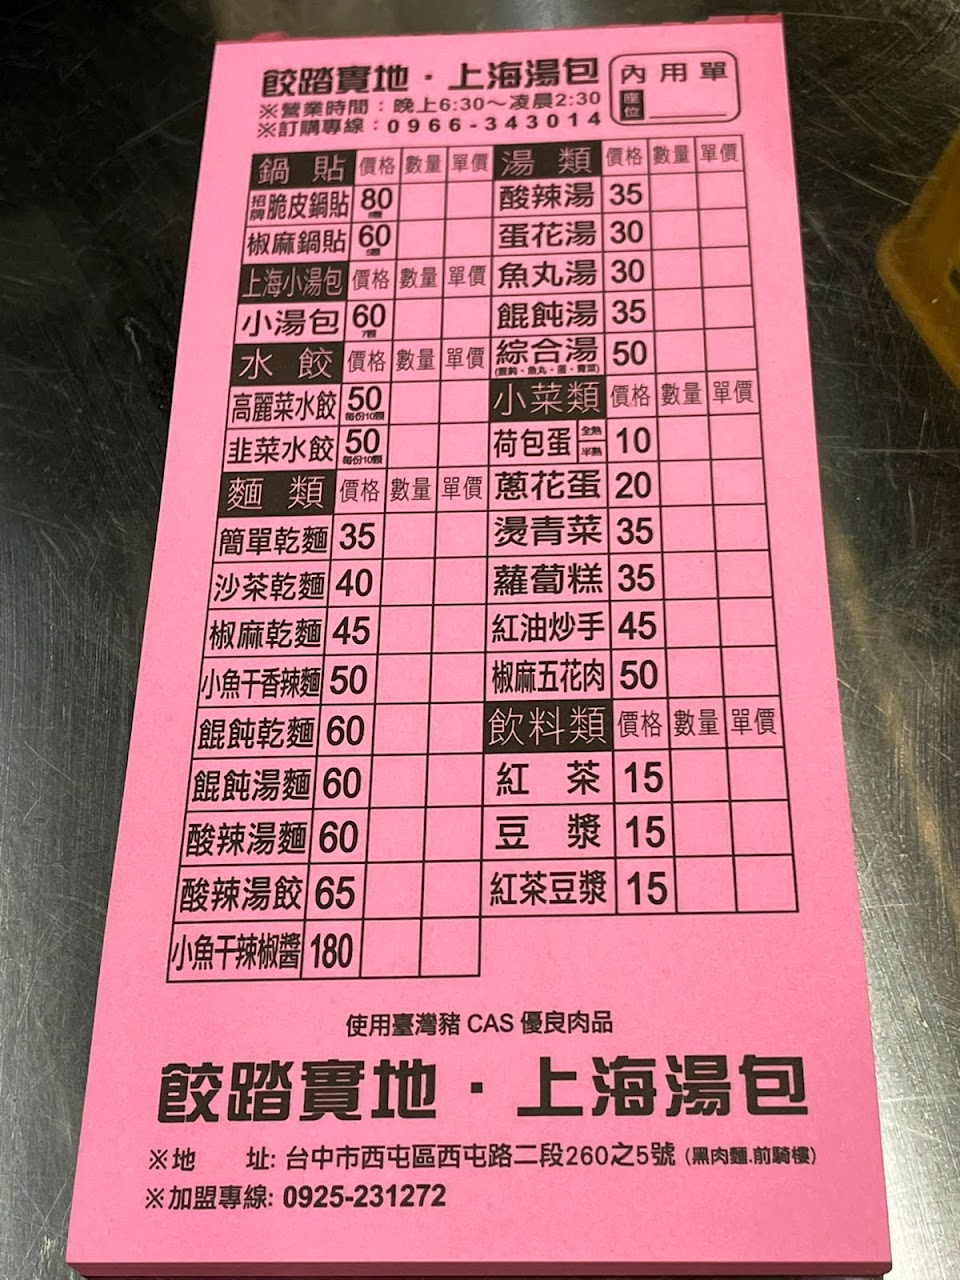 餃踏實地·上海湯包
※營業時間：晚上6:30～凌晨2:30
※訂購專線：0966-343014
內用單
座位
鍋貼 價格 數量 單價
招牌脆皮鍋貼 80
椒麻鍋貼 60
上海小湯包 價格 數量 單價
小湯包 60 7顆
水餃 價格 數量 單價
高麗菜水餃 50 每份10顆
韭菜水餃 50 每份10顆
麵類 價格 數量 單價
簡單乾麵 35
沙茶乾麵 40
椒麻乾麵 45
小魚干香辣麵 50
餛飩乾麵 60
餛飩湯麵 60
酸辣湯麵 60
酸辣湯餃 65
小魚干辣椒醬 180
湯類 價格 數量 單價
酸辣湯 35
蛋花湯 30
魚丸湯 30
餛飩湯 35
綜合湯 50
(餛飩、魚丸、蛋、青菜)
小菜類 價格 數量 單價
荷包蛋 全熟 半熟 10
蔥花蛋 20
燙青菜 35
蘿蔔糕 35
紅油炒手 45
椒麻五花肉 50
飲料類 價格 數量 單價
紅茶 15
豆漿 15
紅茶豆漿 15
使用臺灣豬 CAS 優良肉品
餃踏實地·上海湯包
※地 址: 台中市西屯區西屯路二段260之5號 (黑肉麵.前騎樓)
※加盟專線: 0925-231272